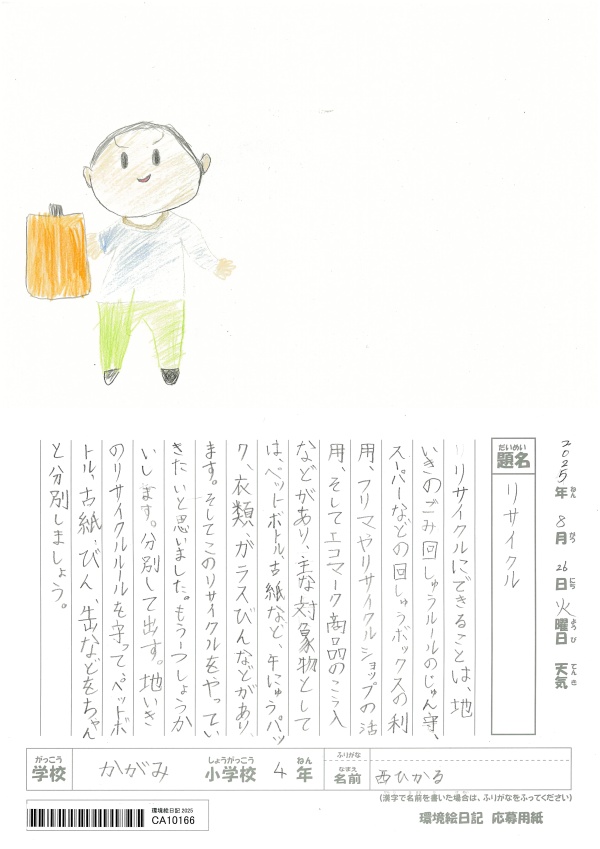 2025年 8月 26日 火曜日 天気
ねん がつ にち ようび てんき
だいめい
題名
リサイクル
リサイクルにできることは、地
いきのごみ回しゅうルールのじゅん守、
スーパーなどの回しゅうボックスの利
用、フリマやリサイクルショップの活
用、そしてエコマーク商品のこう入
などがあり、主な対象物として
は、ペットボトル、古紙など、牛にゅうパッ
ク、衣類、ガラスびんなどがあり
ます。そしてこのリサイクルをやってい
きたいと思いました。もう一つしょうか
いします。分別して出す。地いき
のリサイクルルールを守って、ペットボ
トル、古紙、びん、生出などをちゃん
と分別しましょう。
がっこう
学校
かがみ
しょうがっこう
小学校
4
ねん
年
ふりがな
なまえ
名前
西ひかる
(漢字で名前を書いた場合は、ふりがなをふってください)
環境絵日記 2025
CA10166
環境絵日記 応募用紙